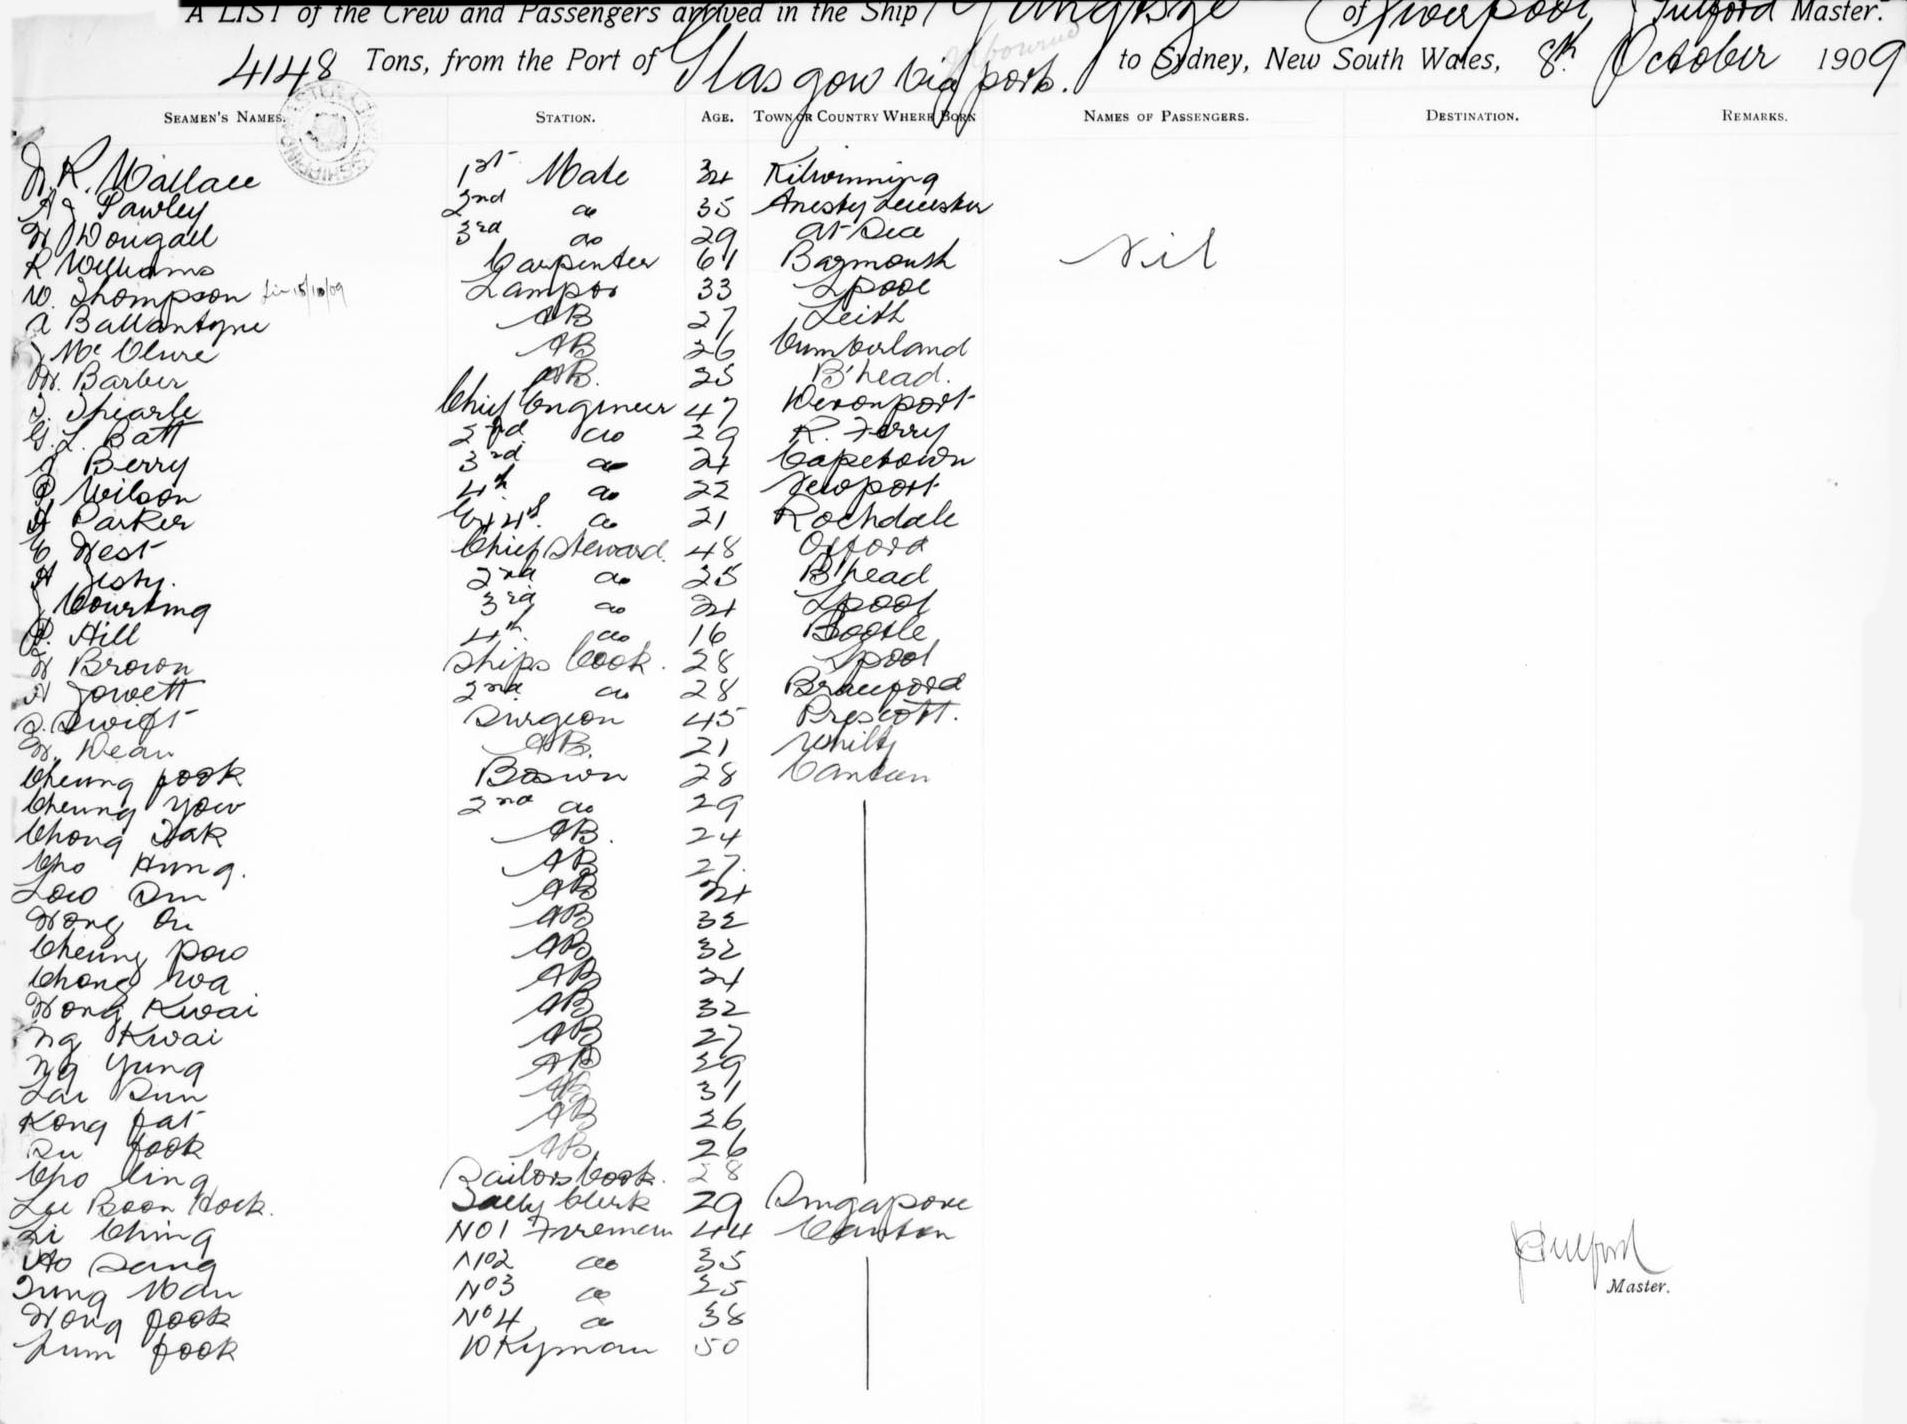 A LIST of the Crew and Passengers arrived in the Ship Yangtsze of Liverpool, J Fulford Master.
4148 Tons, from the Port of Glasgow via ports. to Sydney, New South Wales, 8th October 1909
SEAMEN'S NAMES. STATION. AGE. TOWN OR COUNTRY WHERE BORN NAMES OF PASSENGERS. DESTINATION. REMARKS.
W. R. Wallace 1st Mate 34 Kilwinning
A J Pawley 2nd do 35 Anesty Leicester
W J Dougall 3rd do 29 at Sea
R Williams Carpenter 61 Barmouth Nil
W. Thompson 15/10/09 Lamps 33 Lpool
A Ballantyne AB 27 Leith
J McClure AB 26 Cumberland
W. Barber AB. 25 B'head.
S. Spearle Chief Engineer 47 Devonport
G. L. Batt 2nd do 29 R. Ferry
J Berry 3rd do 24 Capetown
P. Wilson 4th do 22 Newport
H Parker Ex 4th do 21 Rochdale
C West Chief Steward 48 Oxford
H Jesty. 2nd do 25 B'head
J Courting 3rd do 24 Lpool
P. Hill 4th do 16 Bootle
W Brown Ships Cook. 28 Lpool
H Jowett 2nd do 28 Bradford
S. Swift Surgeon 45 Prescott.
W. Dean AB. 21 Whitby
Cheung fook Bosun 28 Canton
Cheung Yow 2nd do 29
Chong Tak AB. 24
Cho Hung. AB 27.
Low Sun AB 34
Wong On AB 32
Cheung Pow AB 32
Chong Wa AB 24
Wong Kwai AB 32
Ng Kwai AB 27
Ng Yung AB 39
Lai Sun AB 31
Kong fat AB 26
Su fook AB 26
Cho Ling Sailors Cook. 28
Lee Boon Hock. Tally Clerk 29 Singapore
Li Ching No1 Fireman 44 Canton
Ho Sang No2 do 35
Tung Man No3 do 25
J Fulford
Master.
Wong fook No4 do 38
Lum fook Dkyman 50